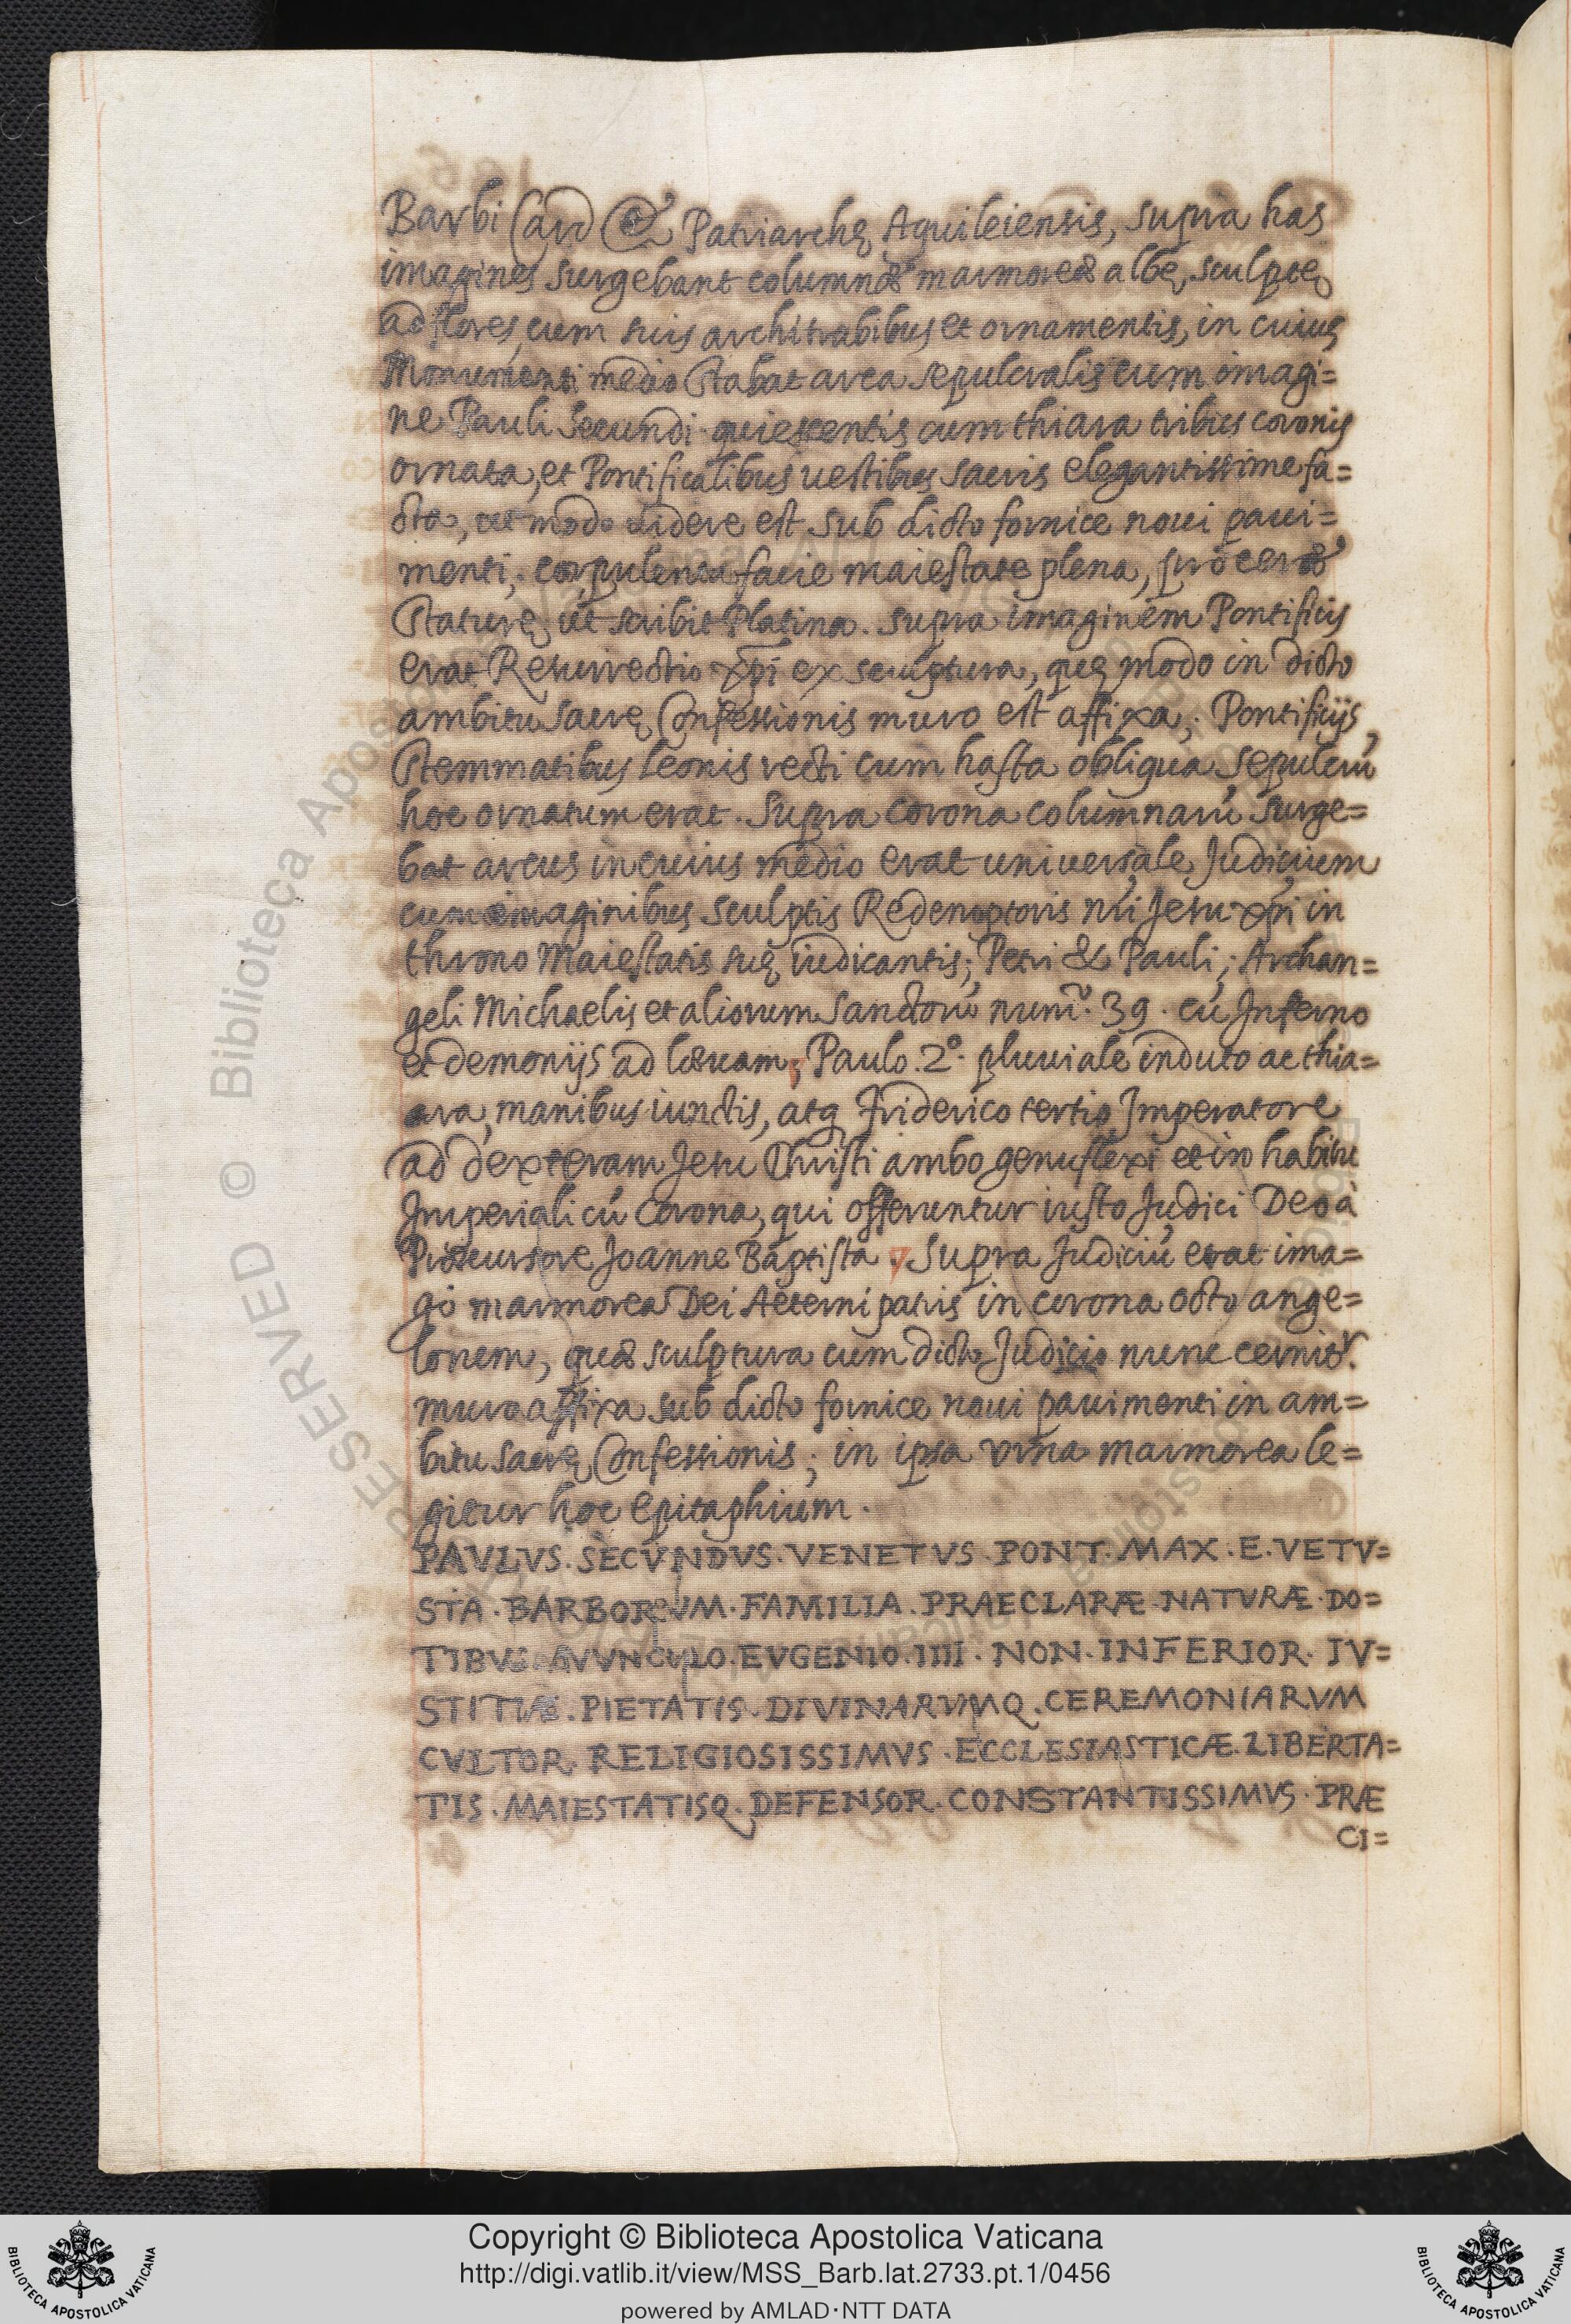 Barbi Card. et Patriarchę Aquileiensis, supra has
imagines surgebant columnæ marmoreæ albę, sculptę
ad flores, cum suis architrabibus et ornamentis, in cuius
Monumenti medio stabat arca sepulcralis cum imagi=
ne Pauli Secundi quiescentis cum thiara tribus coronis
ornata, et Pontificalibus uestibus sacris elegantissime fa=
cta, ut modo uidere est sub dicto fornice noui paui=
menti, corpulenta facie maiestate plena, proceræ
staturę ut scribit Platina. supra imaginem Pontificis
erat Resurrectio xp̄i ex sculptura, quę modo in dicto
ambitu sacrę Confessionis muro est affixa; Pontificijs,
stemmatibus leonis recti cum hasta obliqua, sepulcrū
hoc ornatum erat. Supra corona columnarū surge=
bat arcus in cuius medio erat uniuersale Judicium
cum imaginibus sculptis Redemptoris nr̄i Jesu xp̄i in
throno Maiestatis suę iudicantis; Petri & Pauli; Archan=
geli Michaelis et aliorum Sanctorū num.º 39. cū Inferno
et demonijs ad læuam; Paulo. 2.º pluuiale induto ac thia=
ara, manibus iunctis, atq Friderico tertio Imperatore
ad dexteram Jesu Christi ambo genuflexi et in habitu
Imperiali cū Corona, qui offeruntur iusto Judici Deo à
Præcursore Joanne Baptista. Supra Judiciū erat ima=
go marmorea Dei Aeterni patris in corona octo ange=
lorum, quæ sculptura cum dicto Judicio nunc cernitr.
muro affixa sub dicto fornice noui pauimenti in am=
bitu sacrę Confessionis; in ipsa vrna marmorea le=
gitur hoc epitaphium.
PAVLVS. SECVNDVS. VENETVS. PONT. MAX. E. VETV=
STA. BARBORVM. FAMILIA. PRAECLARÆ. NATVRÆ. DO=
TIBVS. AVVNCVLO. EVGENIO. IIII. NON. INFERIOR. IV=
STITIÆ. PIETATIS. DIVINARVMQ. CEREMONIARVM
CVLTOR. RELIGIOSISSIMVS. ECCLESIASTICÆ. LIBERTA=
TIS. MAIESTATISQ. DEFENSOR. CONSTANTISSIMVS. PRÆ
CI=
RESERVED © Biblioteca Apostolica Vaticana
Copyright © Biblioteca Apostolica Vaticana
http://digi.vatlib.it/view/MSS_Barb.lat.2733.pt.1/0456
powered by AMLAD·NTT DATA
BIBLIOTECA APOSTOLICA VATICANA
BIBLIOTECA APOSTOLICA VATICANA